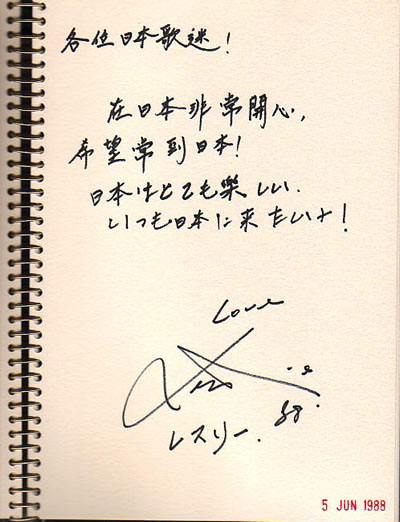 各位日本歌迷！
在日本非常開心，
希望常到日本！
日本はとても楽しい.
いつも日本に来たいナ！
Love
Leslie
レスリー. 88.
5 JUN 1988